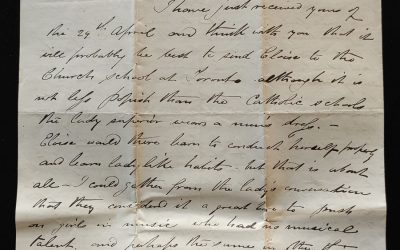 I have just received yours of
the 29th April and think with you that it
will probably be best to send Eloise to the
Church school at Toronto although it is
not less popish than the Catholic schools
the lady superior wears a nun's dress. –
Eloise would there learn to conduct herself properly
and learn lady like habits but that is about
all – I could gather from the lady's conversation
that they considered it a great to push
on girls in music who had no musical
talent, and perhaps the same in the